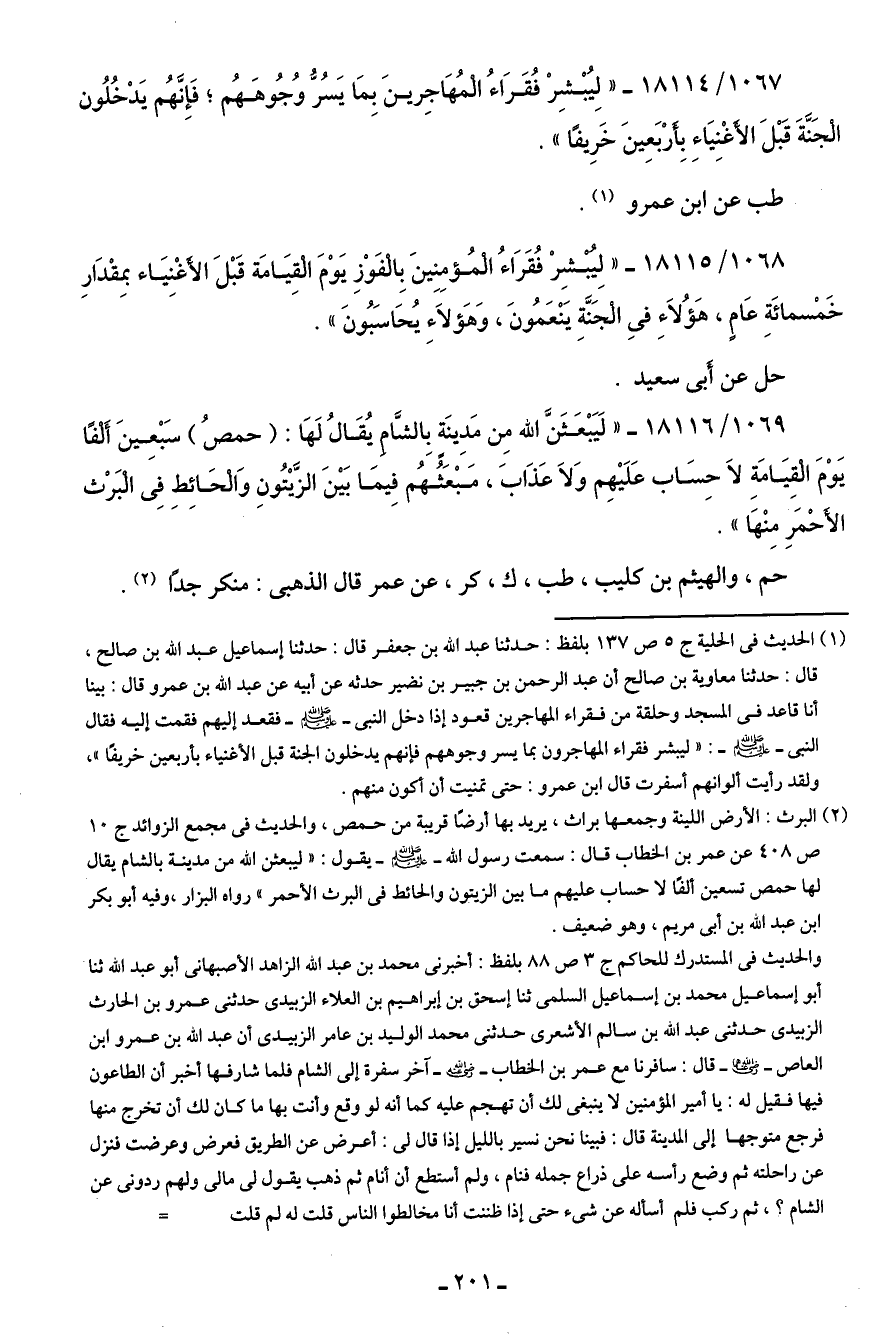 ١٨١١٤/١٠٦٧ ـ « لِيُبْشِرْ فُقَرَاءُ الْمُهَاجِرِينَ بِمَا يَسُرُّ وُجُوهَهُم ؛ فَإِنَّهُم يَدْخُلُون
الْجَنَّةَ قَبْلَ الأَغْنِيَاءِ بِأَرْبَعِينَ خَرِيفًا » .
طب عن ابن عمرو (١) .
١٨١١٥/١٠٦٨ ـ « لِيُبْشِرْ فُقَرَاءُ الْمُؤمِنِينَ بِالْفَوْزِ يَوْمَ الْقِيَامَة قَبْلَ الأَغْنِيَاء بِمقْدَارِ
خَمْسمائَةِ عَامٍ ، هَؤُلاَءِ فِى الْجَنَّةِ يَنْعَمُونَ ، وَهَؤلاَءِ يُحَاسَبُونَ » .
حل عن أَبى سعيد .
١٨١١٦/١٠٦٩ ـ « لَيَبْعَثَنَّ الله مِن مَدِينَةٍ بِالشَّامِ يُقَالُ لَهَا : ( حمصُ ) سَبْعِينَ أَلْفًا
يَوْمَ الْقِيَامَةِ لاَ حِسَاب عَلَيْهِم وَلاَ عَذَابَ ، مَبْعَثُهُم فِيمَا بَيْنَ الزَّيْتُونِ وَالْحَائِطِ فِى الْبَرْث
الأَحْمَرِ مِنْهَا » .
حم ، والهيثم بن كليب ، طب ، ك ، كر ، عن عمر قال الذهبى : منكر جداً (٢) .
(١) الحديث فى الحلية ج ٥ ص ١٣٧ بلفظ : حدثنا عبد الله بن جعفر قال : حدثنا إسماعيل عبد الله بن صالح ،
قال : حدثنا معاوية بن صالح أن عبد الرحمن بن جبير بن نضير حدثه عن أبيه عن عبد الله بن عمرو قال : بينا
أنا قاعد فى المسجد وحلقة من فقراء المهاجرين قعود إذا دخل النبى ـ ﷺ ـ فقعد إليهم فقمت إليه فقال
النبى ـ ﷺ ـ : « ليبشر فقراء المهاجرون بما يسر وجوههم فإنهم يدخلون الجنة قبل الأغنياء بأربعين خريفًا »،
ولقد رأيت ألوانهم أسفرت قال ابن عمرو : حتى تمنيت أن أكون منهم .
(٢) البرث : الأرض اللينة وجمعها براث ، يريد بها أرضًا قريبة من حمص ، والحديث فى مجمع الزوائد ج ١٠
ص ٤٠٨ عن عمر بن الخطاب قال : سمعت رسول الله ـ ﷺ ـ يقول : « ليبعثن الله من مدينة بالشام يقال
لها حمص تسعين ألفًا لا حساب عليهم ما بين الزيتون والحائط فى البرث الأحمر » رواه البزار ،وفيه أبو بكر
ابن عبد الله بن أبى مريم ، وهو ضعيف .
والحديث فى المستدرك للحاكم ج ٣ ص ٨٨ بلفظ : أخبرنى محمد بن عبد الله الزاهد الأصبهانى أبو عبد الله ثنا
أبو إسماعيل محمد بن إسماعيل السلمى ثنا إسحق بن إبراهيم بن العلاء الزبيدى حدثنى عمرو بن الحارث
الزبيدى حدثنى عبد الله بن سالم الأشعرى حدثنى محمد الوليد بن عامر الزبيدى أن عبد الله بن عمرو ابن
العاص ـ رضي الله عنهما ـ قال : سافرنا مع عمر بن الخطاب ـ رضي الله عنه ـ آخر سفرة إلى الشام فلما شارفها أخبر أن الطاعون
فيها فقيل له : يا أمير المؤمنين لا ينبغى لك أن تهجم عليه كما أنه لو وقع وأنت بها ما كان لك أن تخرج منها
فرجع متوجها إلى المدينة قال : فبينا نحن نسير بالليل إذا قال لى : أعرض عن الطريق فعرض وعرضت فنزل
عن راحلته ثم وضع رأسه على ذراع جمله فنام ، ولم أستطع أن أنام ثم ذهب يقول لى مالى ولهم ردونى عن
الشام ؟ ، ثم ركب فلم أسأله عن شىء حتى إذا ظننت أنا مخالطوا الناس قلت له لم قلت =
ـ ٢٠١ ـ